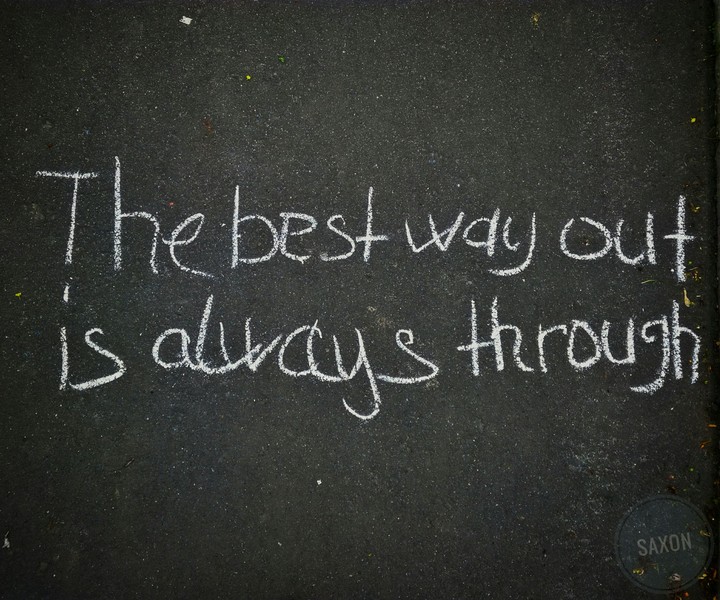 The best way out
is always through
SAXON